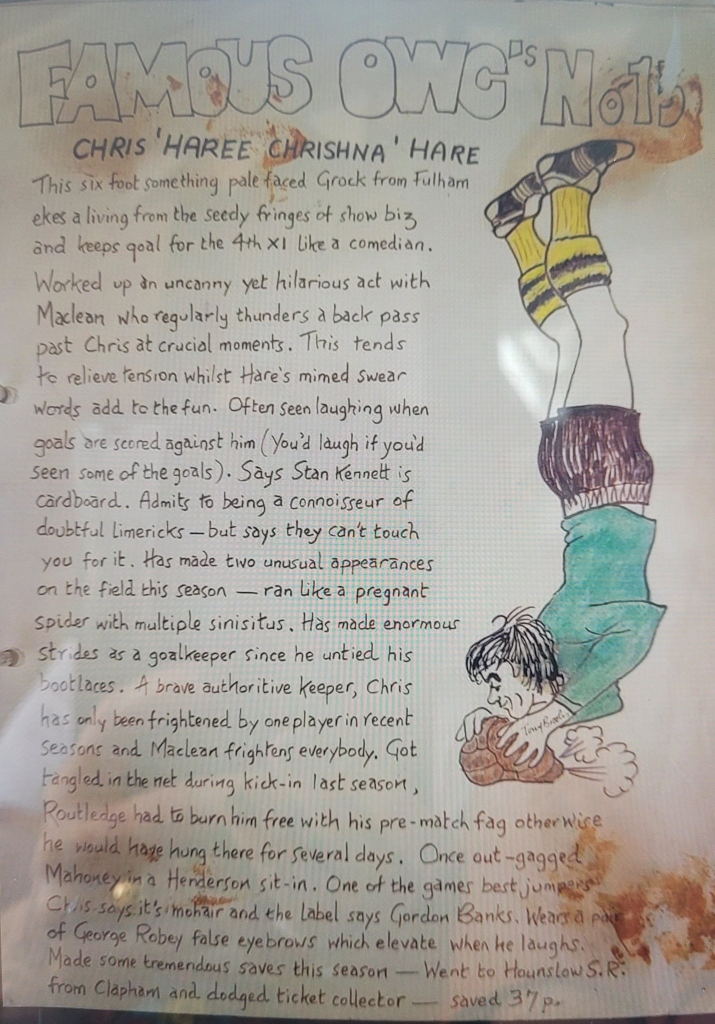 FAMOUS OWC's No 15
CHRIS 'HAREE CHRISHNA' HARE
This six foot something pale faced Grock from Fulham
ekes a living from the seedy fringes of show biz
and keeps goal for the 4th XI like a comedian.
Worked up an uncanny yet hilarious act with
Maclean who regularly thunders a back pass
past Chris at crucial moments. This tends
to relieve tension whilst Hare's mimed swear
words add to the fun. Often seen laughing when
goals are scored against him (You'd laugh if you'd
seen some of the goals). Says Stan Kennett is
cardboard. Admits to being a connoisseur of
doubtful limericks – but says they can't touch
you for it. Has made two unusual appearances
on the field this season — ran like a pregnant
spider with multiple sinisitus. Has made enormous
strides as a goalkeeper since he untied his
bootlaces. A brave authoritive keeper, Chris
has only been frightened by one player in recent
seasons and Maclean frightens everybody. Got
tangled in the net during kick-in last season,
Routledge had to burn him free with his pre-match fag otherwise
he would have hung there for several days. Once out-gagged
Mahoney in a Henderson sit-in. One of the games best jumpers
Chris says it's mohair and the label says Gordon Banks. Wears a pair
of George Robey false eyebrows which elevate when he laughs.
Made some tremendous saves this season — Went to Hounslow S.R.
from Clapham and dodged ticket collector — saved 37p.